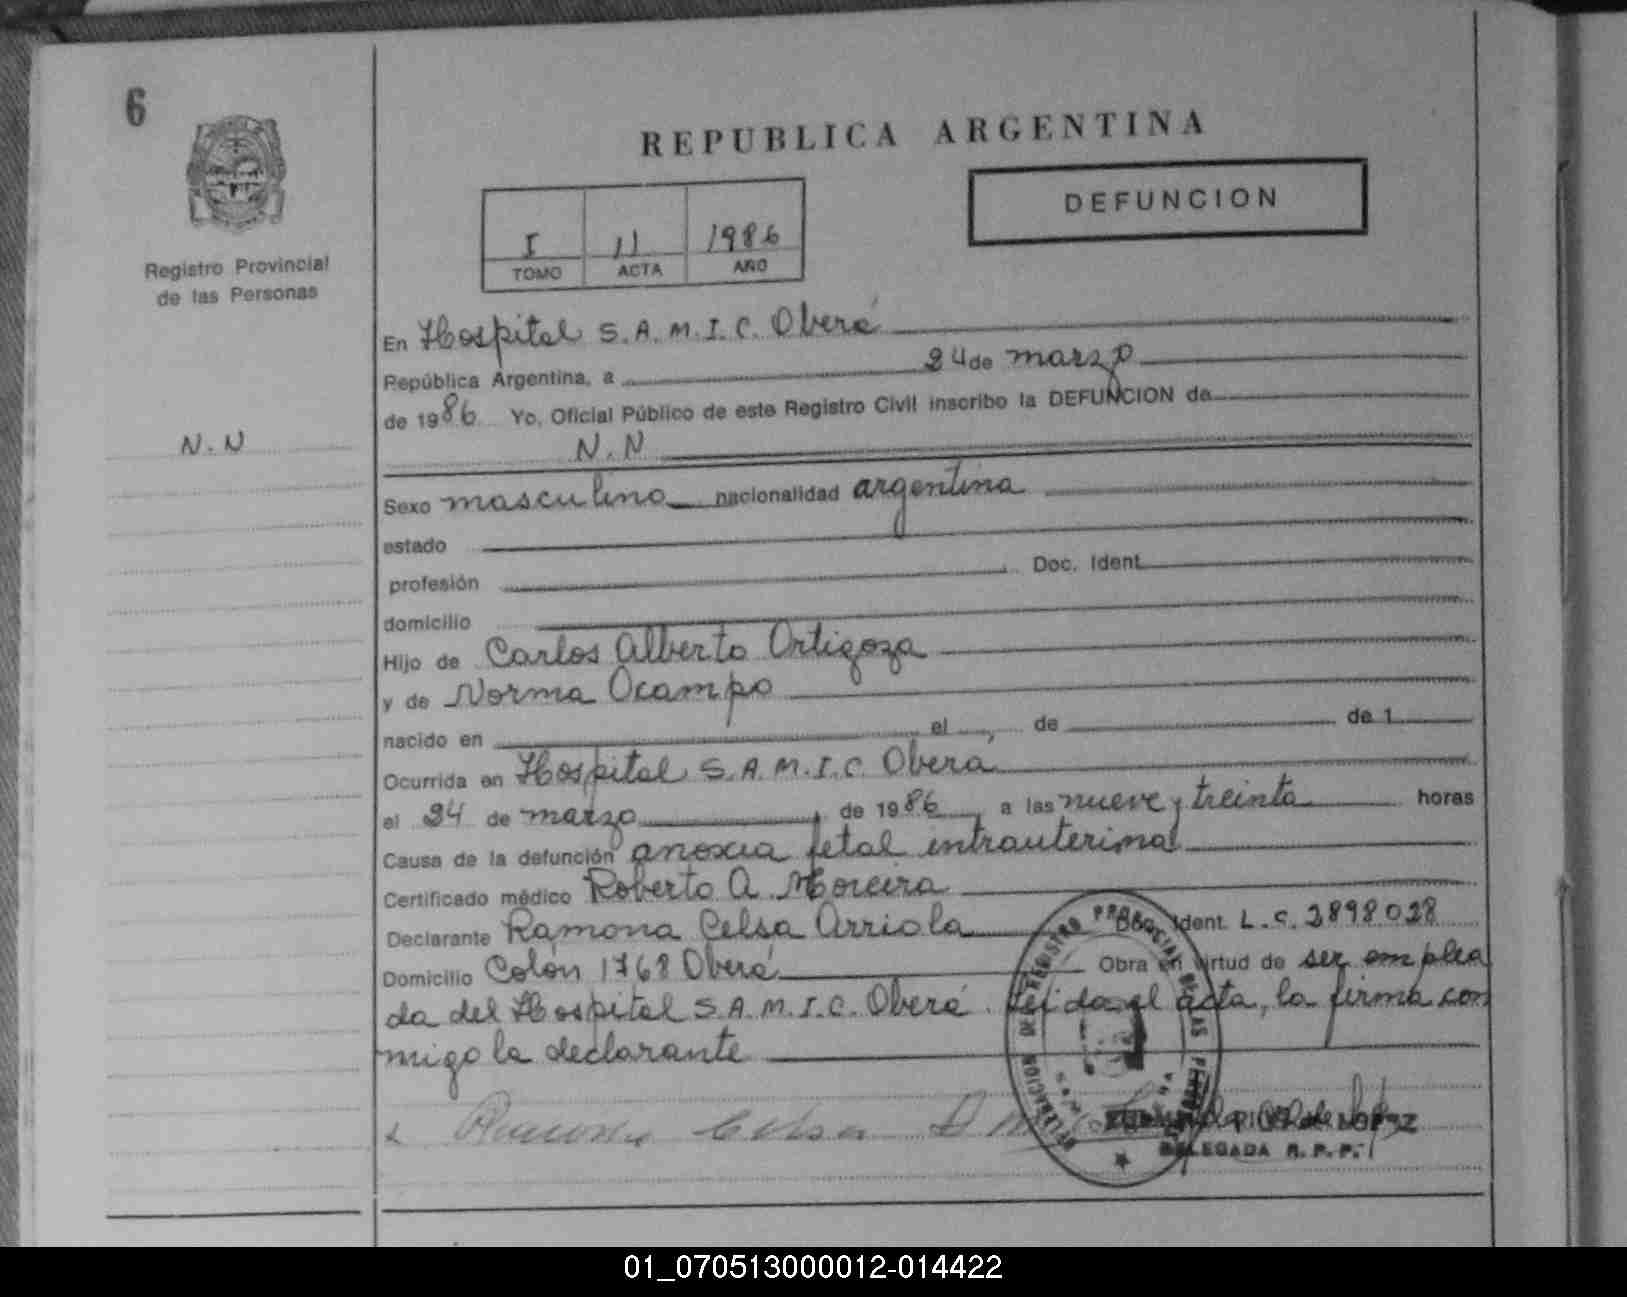 6
REPUBLICA ARGENTINA
DEFUNCION
I 11 1986
TOMO ACTA AÑO
Registro Provincial
de las Personas
En Hospital S.A.M.I.C. Oberá
República Argentina, a 24 de marzo
de 1986 Yo, Oficial Público de este Registro Civil inscribo la DEFUNCION de
N.N
N.N
Sexo masculino nacionalidad argentina
estado
profesión Doc. Ident.
domicilio
Hijo de Carlos Alberto Ortigoza
y de Norma Ocampo
nacido en el , de de 1
Ocurrida en Hospital S.A.M.I.C. Oberá
el 24 de marzo, de 1986, a las nueve y treinta horas
Causa de la defunción anoxia fetal intrauterina
Certificado médico Roberto A. Moreira
Declarante Ramona Celsa Arriola Doc. Ident. L.C. 2898028
Domicilio Colón 1768 Oberá Obra en virtud de ser emplea
da del Hospital S.A.M.I.C. Oberá. Leída el acta, la firma con
migo la declarante
Ramona Celsa
DE LOPEZ
DELEGADA R.P.P.
01_070513000012-014422